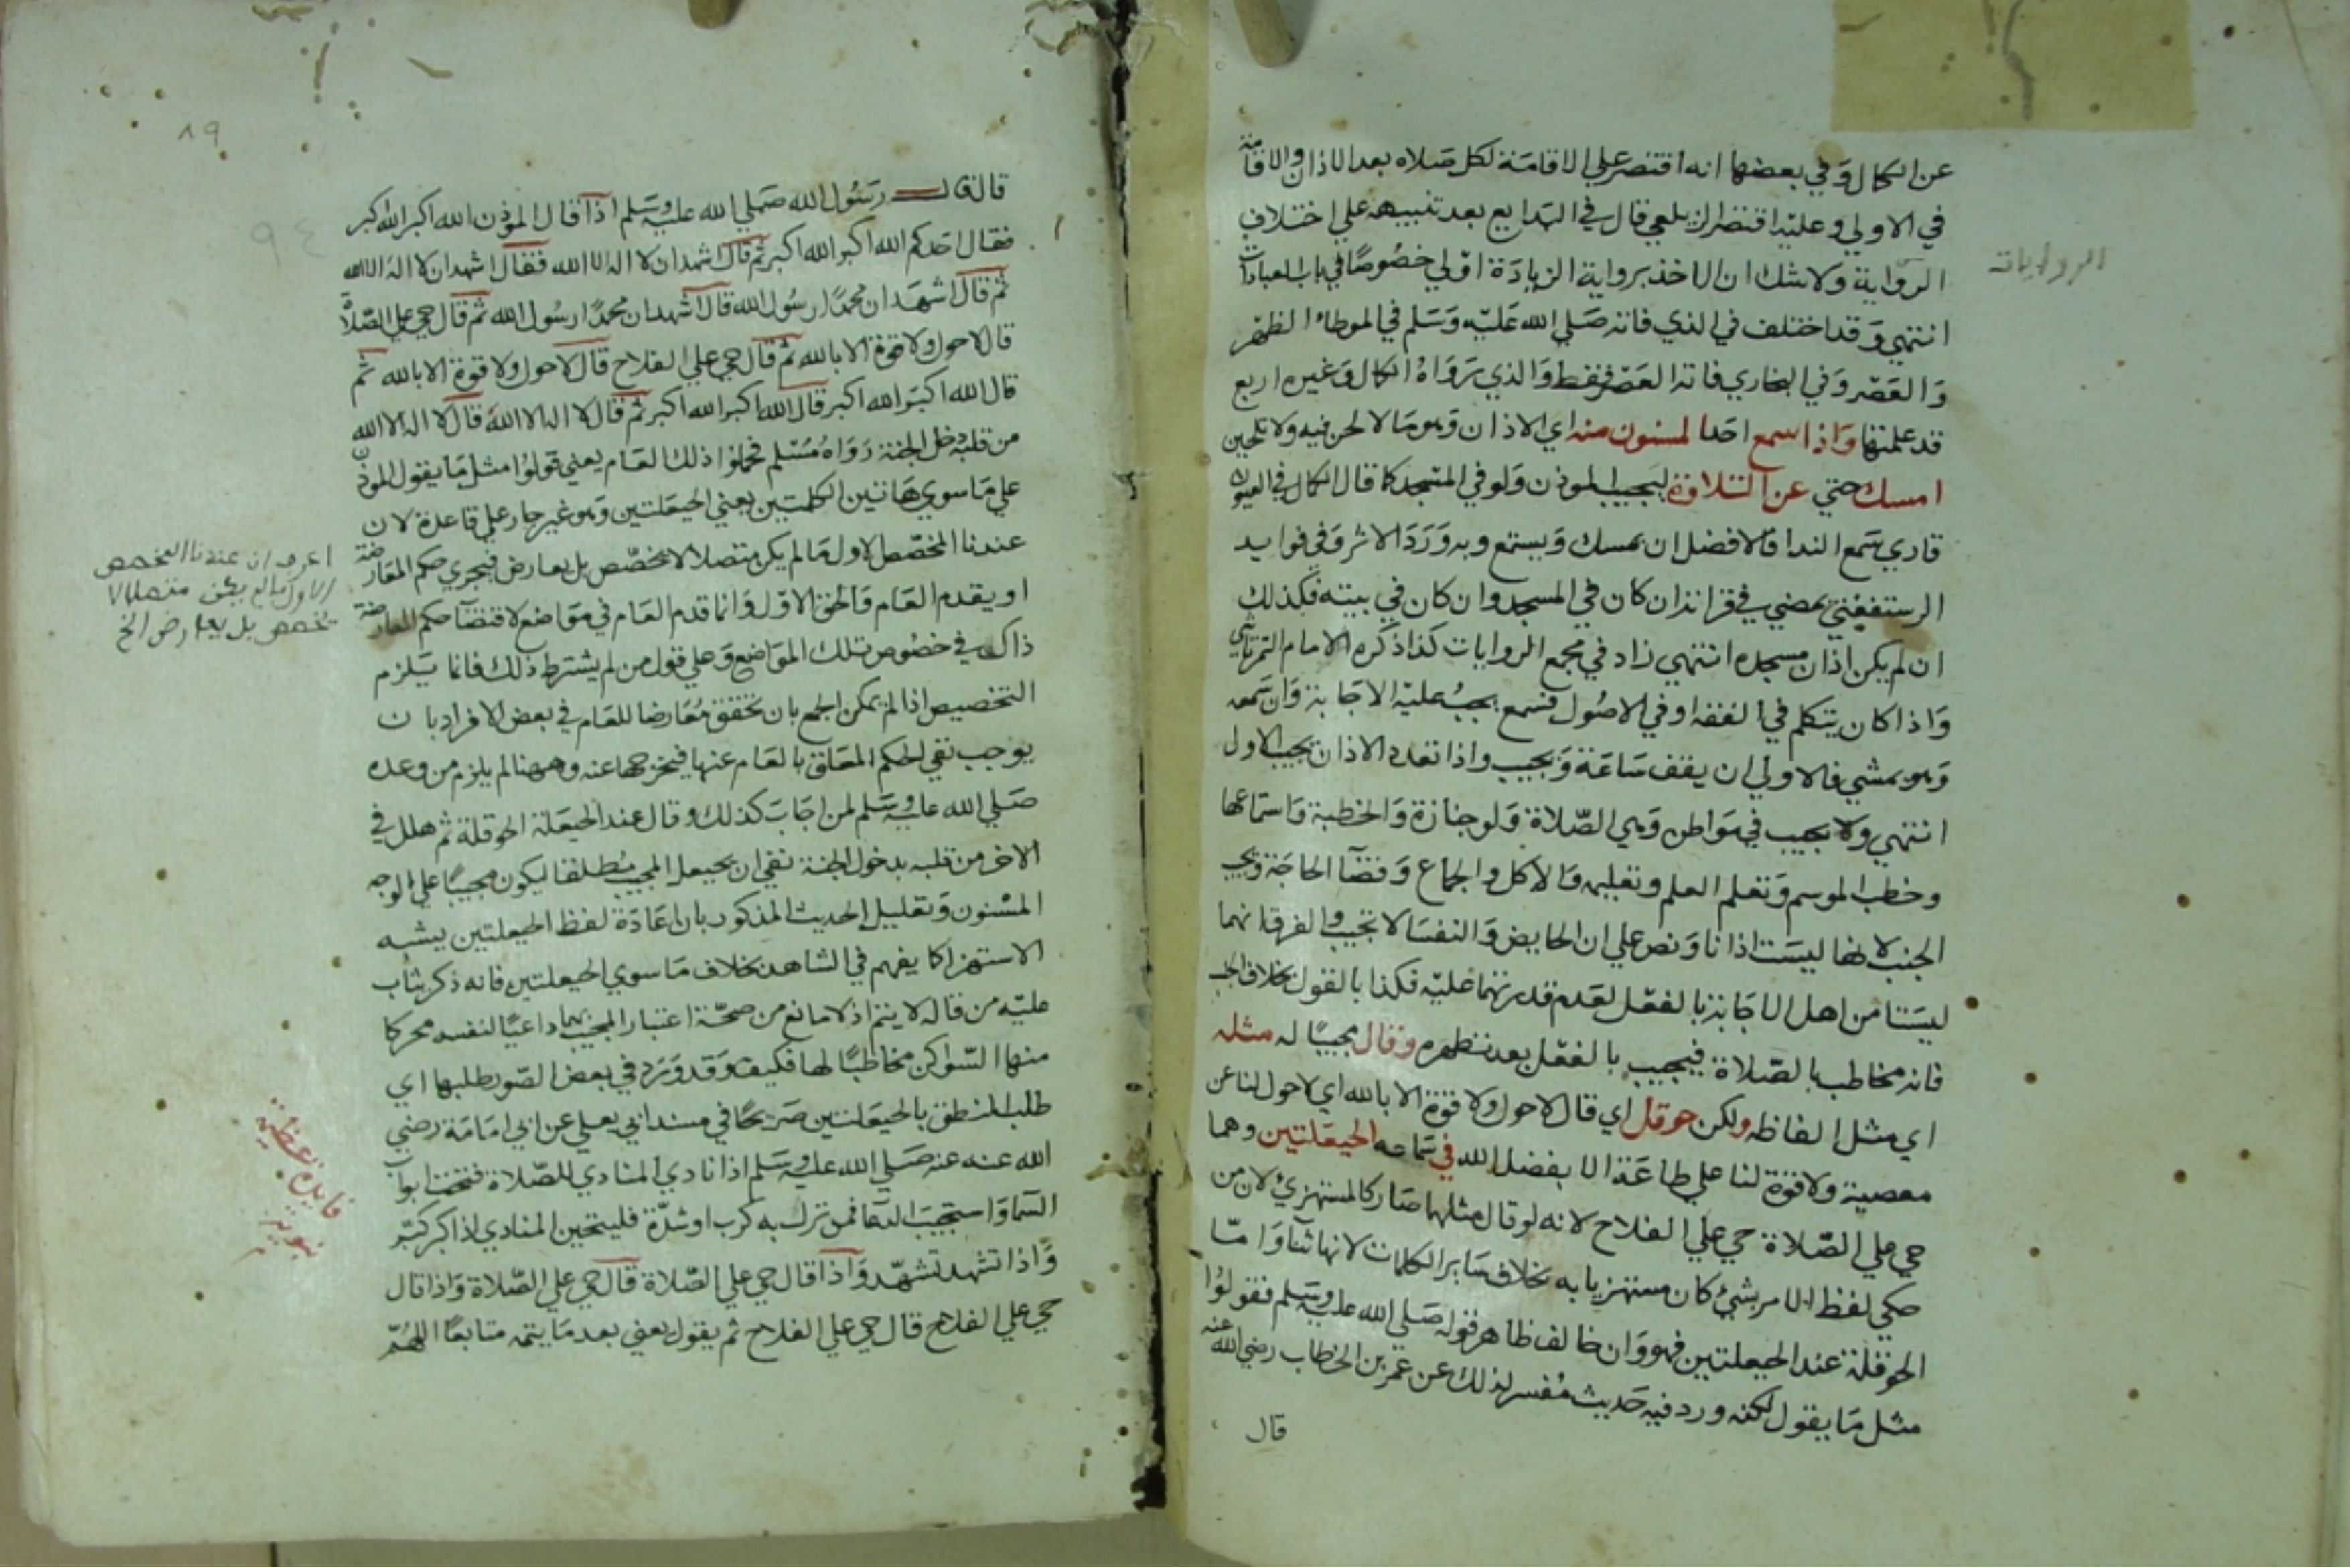 عن الكمال وفي بعضها انه اقتصر علي الاقامة لكل صلاه بعد الاذان والاقامة
في الاولي وعليه اقتصر الزيلعي قال في البدايع بعد تنبيهه علي اختلاف
الرواية ولا شك ان الاخذ برواية الزيادة اولي خصوصا في باب العبادات
انتهي وقد اختلف في الذي فاته صلي الله عليه وسلم في الموطاء الظهر
والعصر وفي البخاري فاته العصر فقط والذي رواه الكمال وغيره اربع
قد علمتها واذا سمع احد المسنون منه اي الاذان وهو ما لا لحن فيه ولا تلحين
امسك حتي عن التلاوة ليجيب الموذن ولو في المسجد كما قال الكمال في العيون
قاري سمع الندا فالافضل ان يمسك ويستمع وبه ورد الاثر وفي فوايد
الرستغفني يمضي في قرانه ان كان في المسجد وان كان في بيته فكذلك
ان لم يكن اذان مسجده انتهي زاد في مجمع الروايات كذا ذكره الامام التمرتاشي
واذا كان يتكلم في الفقه او في الاصول فسمع يجب عليه الاجابة وان سمعه
وهو يمشي فالاولي ان يقف ساعة ويجيب واذا تعدد الاذان يجيب الاول
انتهي ولا يجيب في مواطن وهي الصلاة ولو جنازة والخطبة واستماعها
وخطب الموسم وتعلم العلم وتعليمه والاكل والجماع وقضا الحاجة ويجيب
الجنب لانها ليست اذانا ونص علي ان الحايض والنفسا لا تجيب والفرق انهما
ليستا من اهل الاجابة بالفعل لعدم قدرتهما عليه فكذا بالقول بخلاف الجنب
فانه مخاطب بالصلاة فيجيب بالفعل بعد تطهره وقال مجيبا له مثله
اي مثل الفاظه ولكن حوقل اي قال لا حول ولا قوة الا بالله اي لا حول لنا عن
معصية ولا قوة لنا علي طاعة الا بفضل الله في سماعه الحيعلتين وهما
حي علي الصلاة حي علي الفلاح لانه لو قال مثلهما صار كالمستهزئ لان من
حكي لفظ الامر بشئ كان مستهزيا به بخلاف ساير الكلمات لانها ثنا واما
الحوقلة عند الحيعلتين فهو وان خالف ظاهر قوله صلي الله عليه وسلم فقولوا
مثل ما يقول لكنه ورد فيه حديث مفسر لذلك عن عمر بن الخطاب رضي الله عنه
قال
الروايات
٨٩
٩٤
قال قال رسول الله صلي الله عليه وسلم اذا قال الموذن الله اكبر الله اكبر
فقال احدكم الله اكبر الله اكبر ثم قال اشهد ان لا اله الا الله فقال اشهد ان لا اله الا الله
ثم قال اشهد ان محمدا رسول الله قال اشهد ان محمدا رسول الله ثم قال حي علي الصلاة
قال لا حول ولا قوة الا بالله ثم قال حي علي الفلاح قال لا حول ولا قوة الا بالله ثم
قال الله اكبر الله اكبر قال الله اكبر الله اكبر ثم قال لا اله الا الله قال لا اله الا الله
من قلبه دخل الجنة رواه مسلم فحملوا ذلك العام يعني قولوا مثل ما يقول الموذن
علي ما سوي هاتين الكلمتين يعني الحيعلتين وهو غير جار علي قاعدة لان
عندنا المخصص الاول ما لم يكن متصلا لا يخصص بل يعارض فيجري حكم المعارضة
او يقدم العام والحق الاول وانما قدم العام في مواضع لاقتضا حكم المعارضة
ذاك في خصوص تلك المواضع وعلي قول من لم يشترط ذلك فانما يلزم
التخصيص اذا لم يمكن الجمع بان تحقق معارضا للعام في بعض الافراد بان
يوجب نفي الحكم المعلق بالعام عنها فيخرجها عنه وههنا لم يلزم من وعده
صلي الله عليه وسلم لمن اجاب كذلك وقال عند الحيعلة الحوقلة ثم هلل في
الاخر من قلبه بدخول الجنة نفي ان يحيعل المجيب مطلقا ليكون مجيبا علي الوجه
المسنون وتعليل الحديث المذكور بان اعادة لفظ الحيعلتين يشبه
الاستهزا كما يفهم في الشاهد بخلاف ما سوي الحيعلتين فانه ذكر يثاب
عليه من قاله لا يتم اذ لا مانع من صحة اعتبار المجيب بهما داعيا لنفسه محركا
منها السواكن مخاطبا لها فكيف وقد ورد في بعض الصور طلبها اي
طلب النطق بالحيعلتين صريحا في مسند ابي يعلي عن ابي امامة رضي
الله عنه عنه صلي الله عليه وسلم اذا نادي المنادي للصلاة فتحت ابواب
السما واستجيب الدعا فمن نزل به كرب او شدة فليتحين المنادي اذا كبر كبر
واذا تشهد تشهد واذا قال حي علي الصلاة قال حي علي الصلاة واذا قال
حي علي الفلاح قال حي علي الفلاح ثم يقول يعني بعد ما يتمه متابعا اللهم
اعرف ان عندنا المخصص
الاول ما لم يكن متصلا لا
يخصص بل يعارض الخ
فايدة عظيمة
نبوية